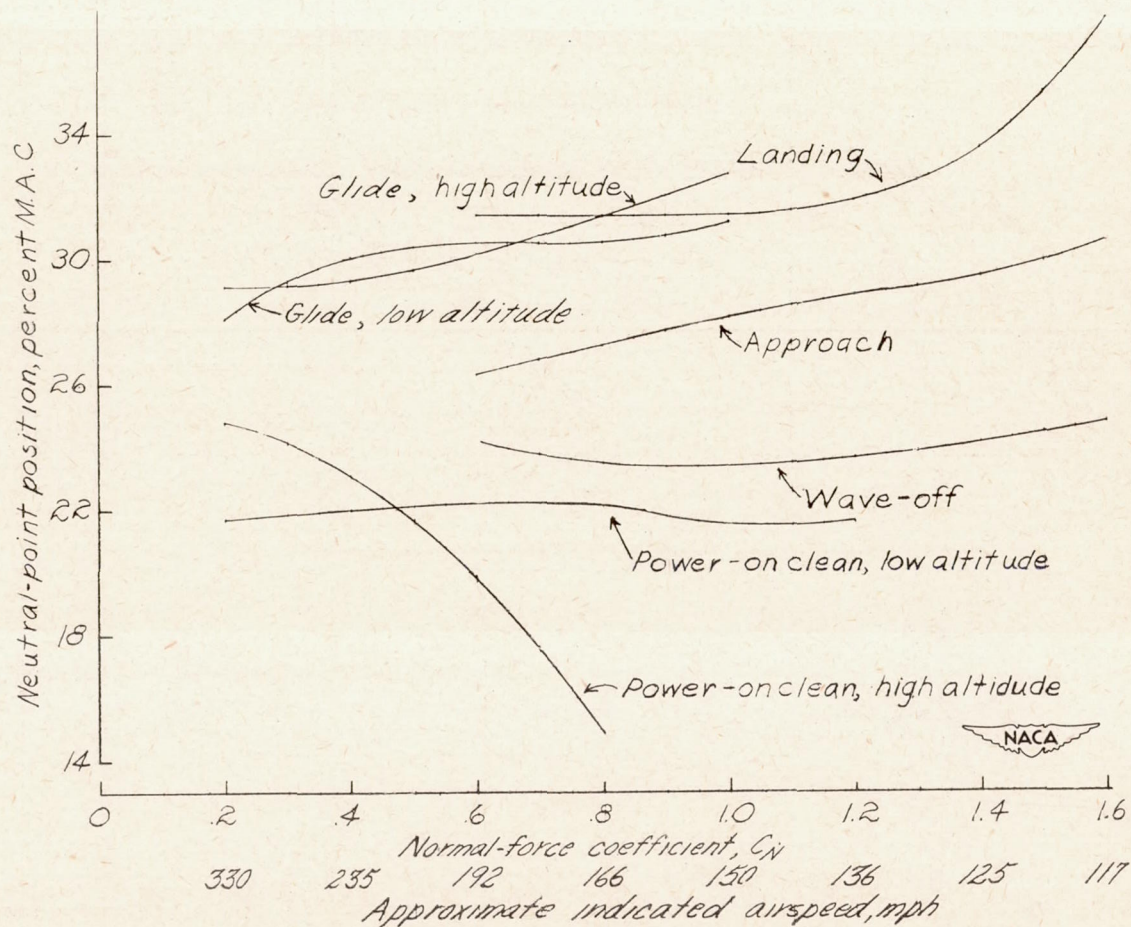 Neutral-point position, percent M.A.C
34
30
26
22
18
14
Landing
Glide, high altitude
Glide, low altitude
Approach
Wave-off
Power-on clean, low altitude
Power-on clean, high altidude
NACA
0 .2 .4 .6 .8 1.0 1.2 1.4 1.6
Normal-force coefficient, CN
330 235 192 166 150 136 125 117
Approximate indicated airspeed, mph